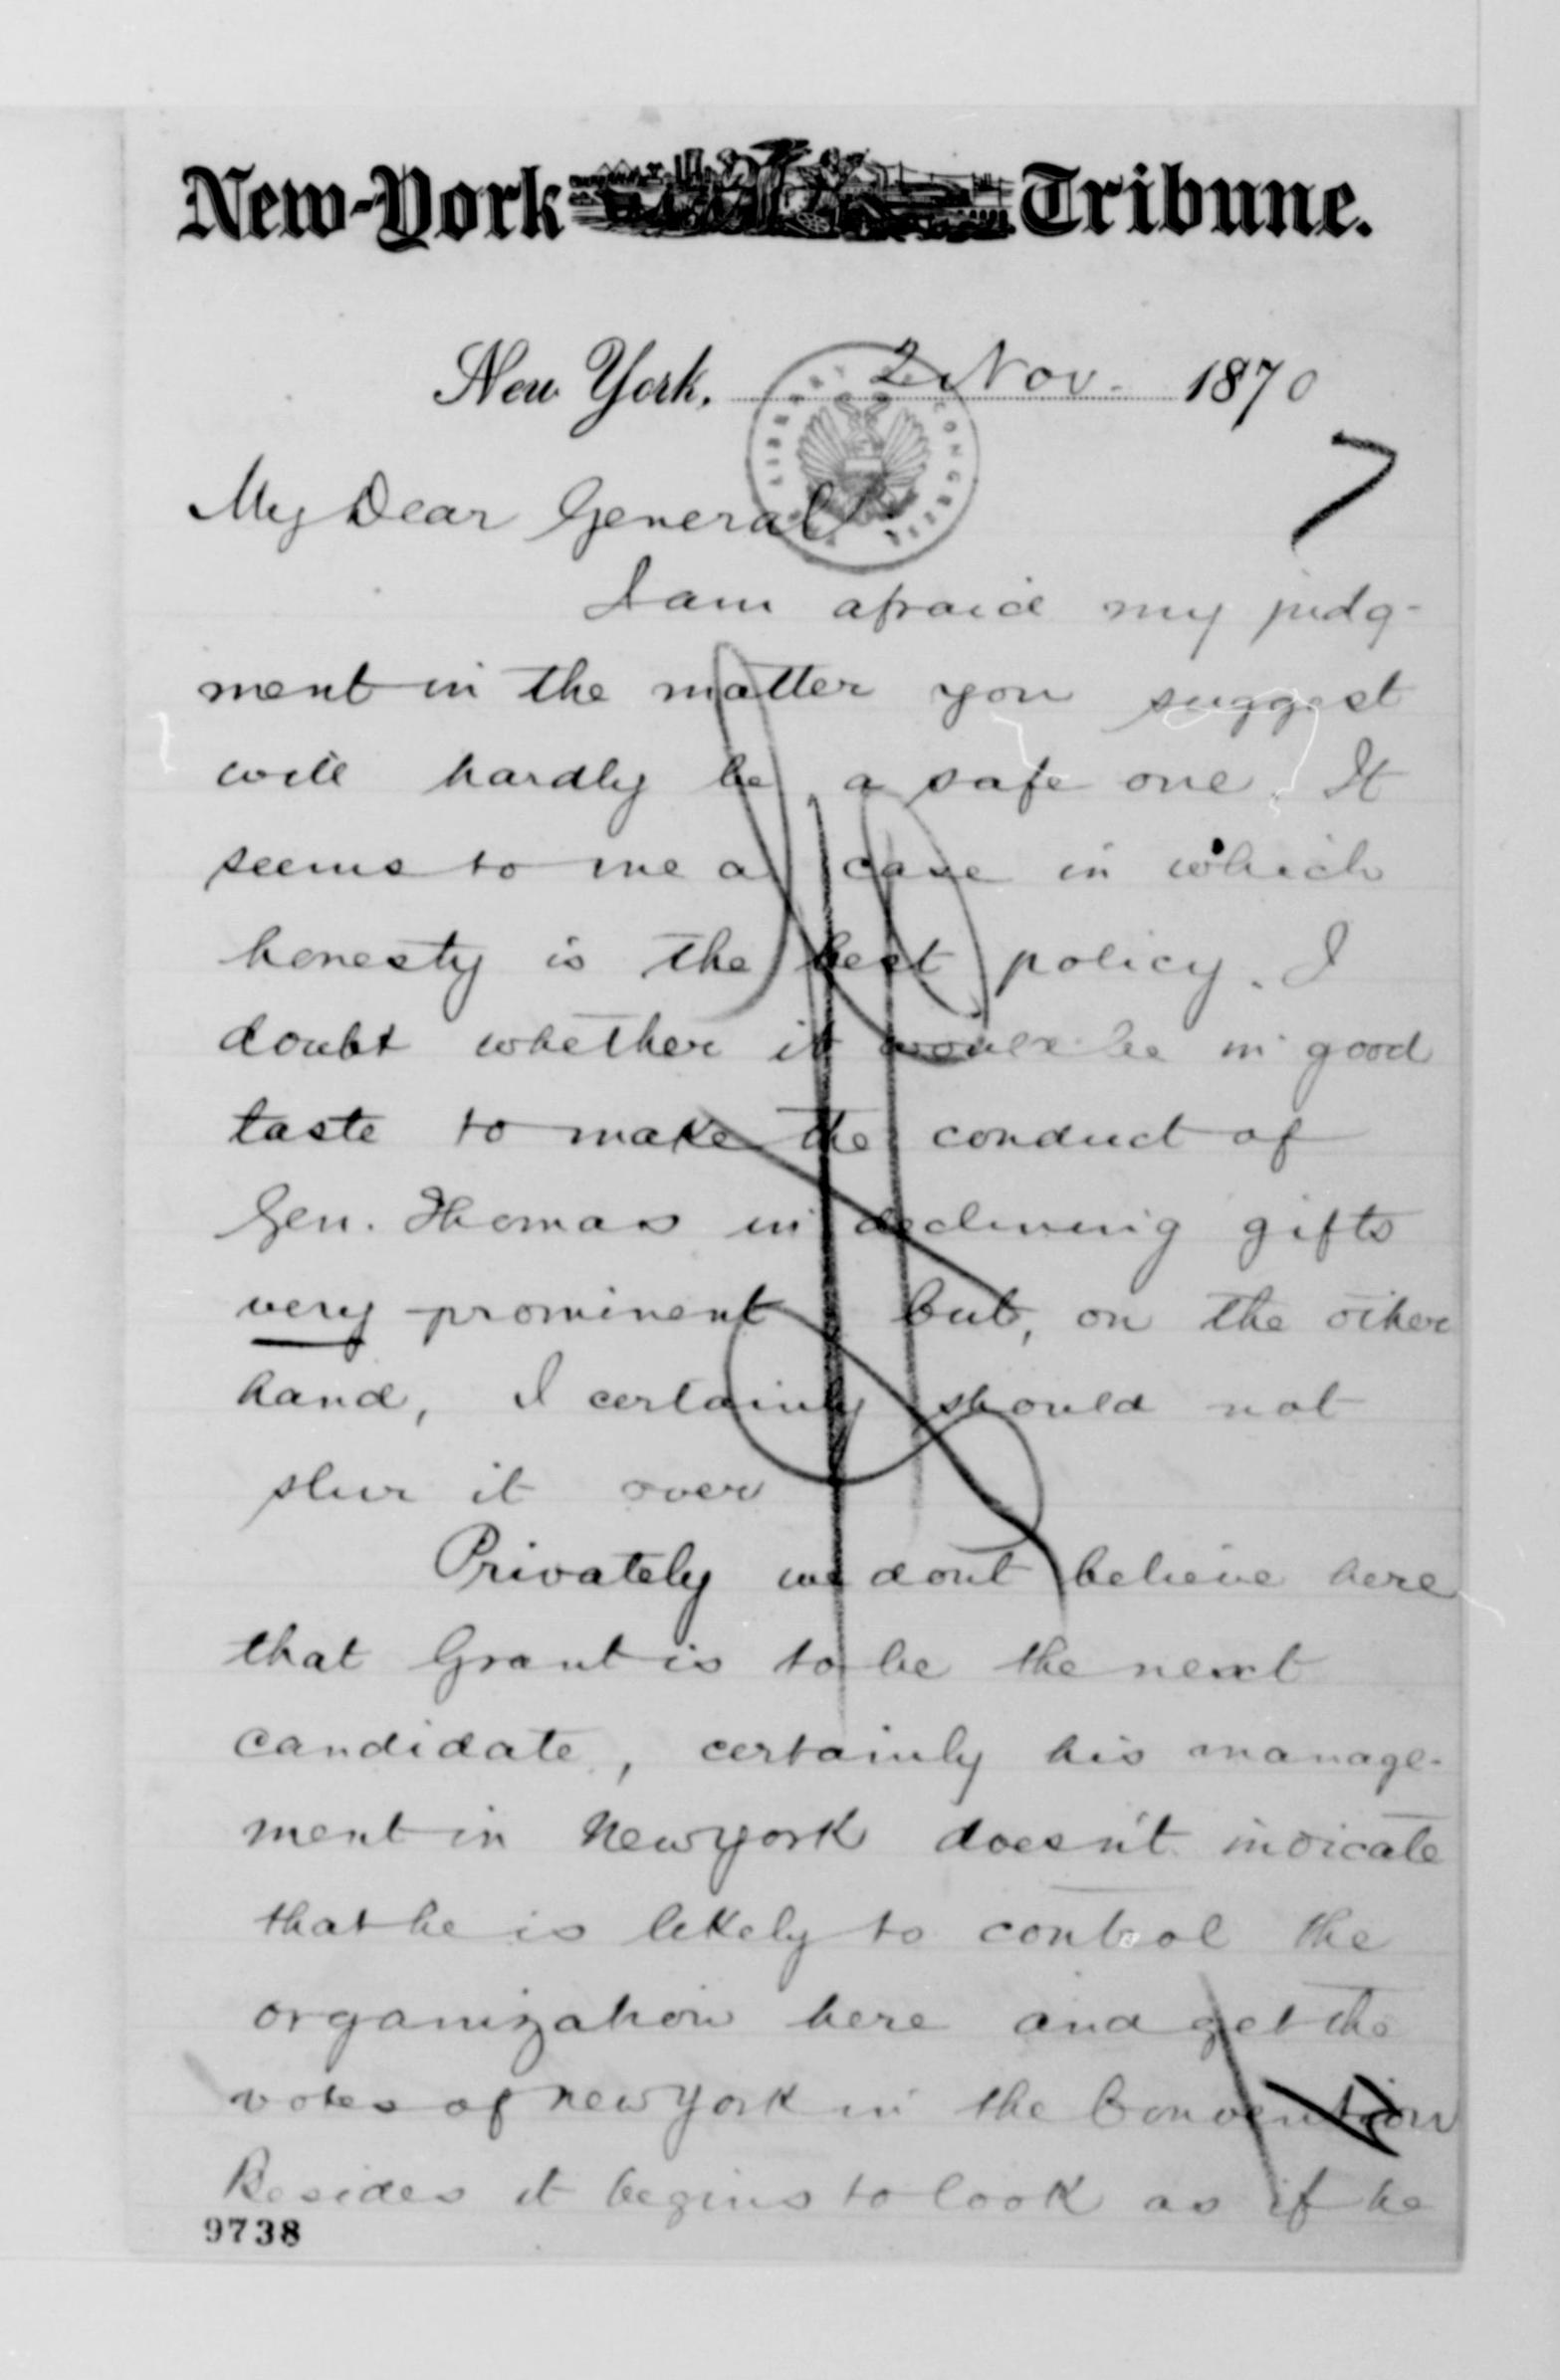 New-York Tribune.
New York, 2 Nov. 1870
LIBRARY CONGRESS
7
My Dear General
I am afraid my judg-
ment in the matter you suggest
will hardly be a safe one. It
seems to me a case in which
honesty is the best policy. I
doubt whether it would be in good
taste to make the conduct of
Gen. Thomas in declining gifts
very prominent but, on the other
hand, I certainly should not
slur it over
Privately we dont believe here
that Grant is to be the next
candidate, certainly his manage-
ment in New York doesn't indicate
that he is likely to control the
organization here and get the
votes of New York in the Convention
Besides it begins to look as if he
9738